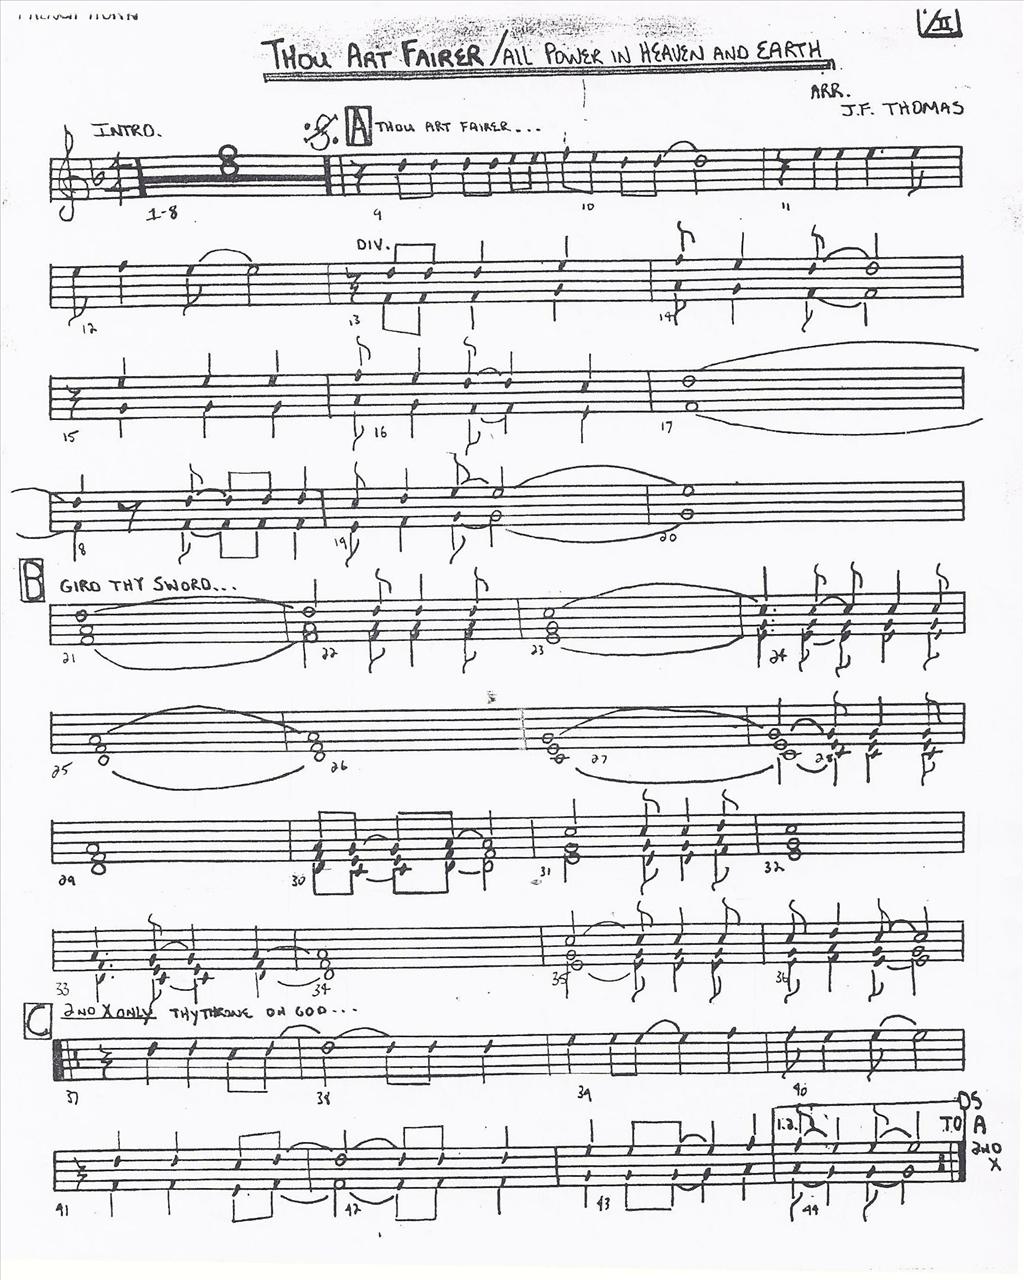 FRENCH HORN
I/II
THOU ART FAIRER/ALL POWER IN HEAVEN AND EARTH
ARR.
J.F. THOMAS
INTRO.
A THOU ART FAIRER...
8
1-8 9 10 11
DIV.
12 13 14
15 16 17
18 19 20
B GIRD THY SWORD...
21 22 23 24
25 26 27 28
29 30 31 32
33 34 35 36
C 2ND X ONLY THY THRONE OH GOD...
37 38 39 40
DS
1.2. TO A
2ND
X
41 42 43 44